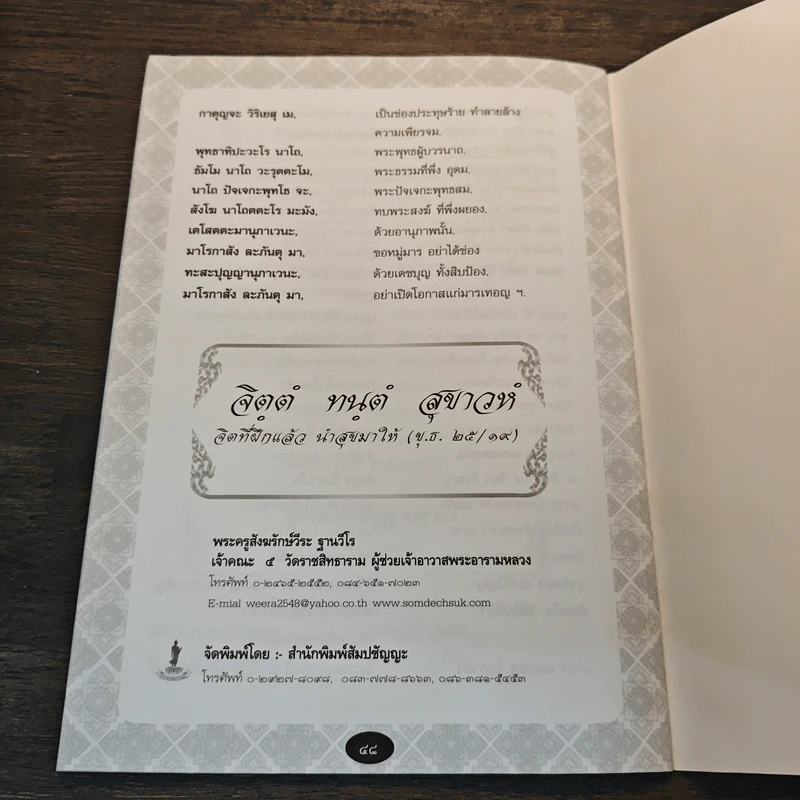 กาตุญจะ วิริเยสุ เม, เป็นช่องประทุษร้าย ทำลายล้าง
ความเพียรจม.
พุทธาทิปะวะโร นาโถ, พระพุทธผู้บวรนาถ.
ธัมโม นาโถ วะรุตตะโม, พระธรรมที่พึ่ง อุดม.
นาโถ ปัจเจกะพุทโธ จะ, พระปัจเจกะพุทธสม.
สังโฆ นาโถตตะโร มะมัง, ทบพระสงฆ์ ที่พึ่งผยอง.
เตโสตตะมานุภาเวนะ, ด้วยอานุภาพนั้น.
มาโรกาสัง ละภันตุ มา, ขอหมู่มาร อย่าได้ช่อง
ทะสะปุญญานุภาเวนะ, ด้วยเดชบุญ ทั้งสิบป้อง.
มาโรกาสัง ละภันตุ มา, อย่าเปิดโอกาสแก่มารเทอญ ฯ.
จิตฺตํ ทนฺตํ สุขาวหํ
จิตที่ฝึกแล้ว นำสุขมาให้ (ขุ.ธ. ๒๕/๑๙)
พระครูสังฆรักษ์วีระ ฐานวีโร
เจ้าคณะ ๕ วัดราชสิทธาราม ผู้ช่วยเจ้าอาวาสพระอารามหลวง
โทรศัพท์ ๐-๒๔๖๕-๒๕๕๒, ๐๘๔-๖๕๑-๗๐๒๓
E-mial weera2548@yahoo.co.th www.somdechsuk.com
จัดพิมพ์โดย :- สำนักพิมพ์สัมปชัญญะ
โทรศัพท์ ๐-๒๙๒๗-๘๐๙๘, ๐๘๓-๗๗๘-๘๖๖๓, ๐๘๖-๓๘๑-๕๔๕๓
๔๘